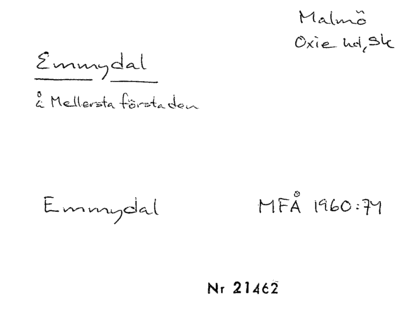 Malmö
Oxie hd, Sk
Emmydal
å Mellersta förstaden
Emmydal MFÅ 1960:71
Nr 21462